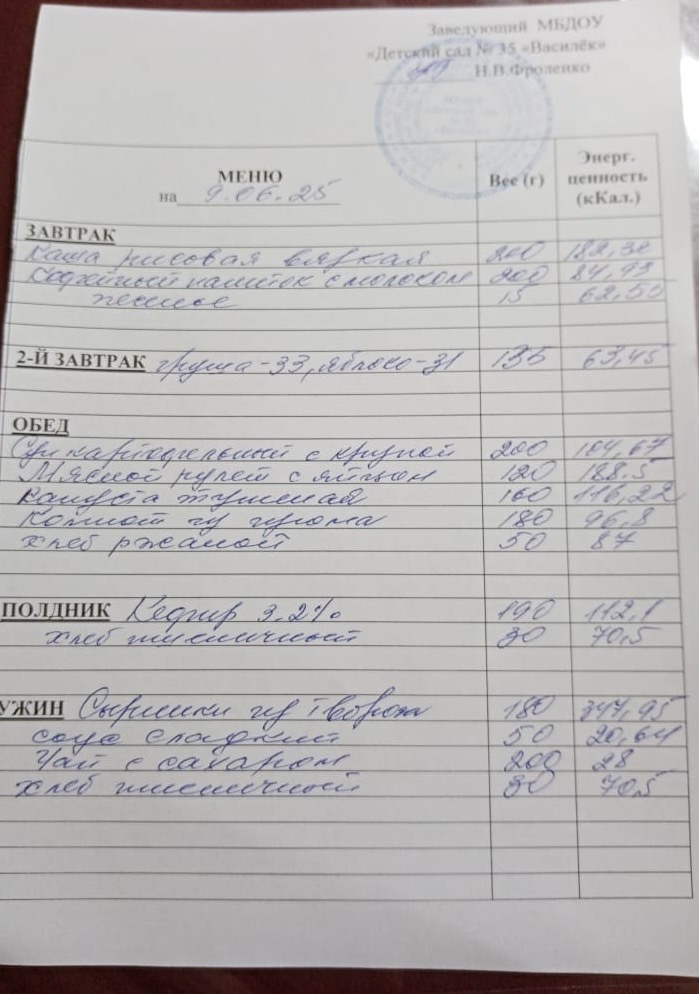 Заведующий МБДОУ
«Детский сад № 35 «Василёк»
Н.В.Фроленко
МЕНЮ
на 9.06.25
Вес (г)
Энерг. ценность (кКал.)
ЗАВТРАК
Каша рисовая вязкая 200 182,32
Кофейный напиток с молоком 200 84,93
печенье 15 62,55
2-Й ЗАВТРАК груша-33, яблоко-31 135 63,45
ОБЕД
Суп картофельный с крупой 200 104,67
Мясной рулет с яйцом 120 188.5
капуста тушеная 160 116,22
Компот из изюма 180 96,8
хлеб ржаной 50 87
ПОЛДНИК Кефир 3.2% 190 112,1
хлеб пшеничный 30 70,5
УЖИН Сырники из творога 180 347,95
соус сладкий 50 20,64
Чай с сахаром 200 28
хлеб пшеничный 30 70,5